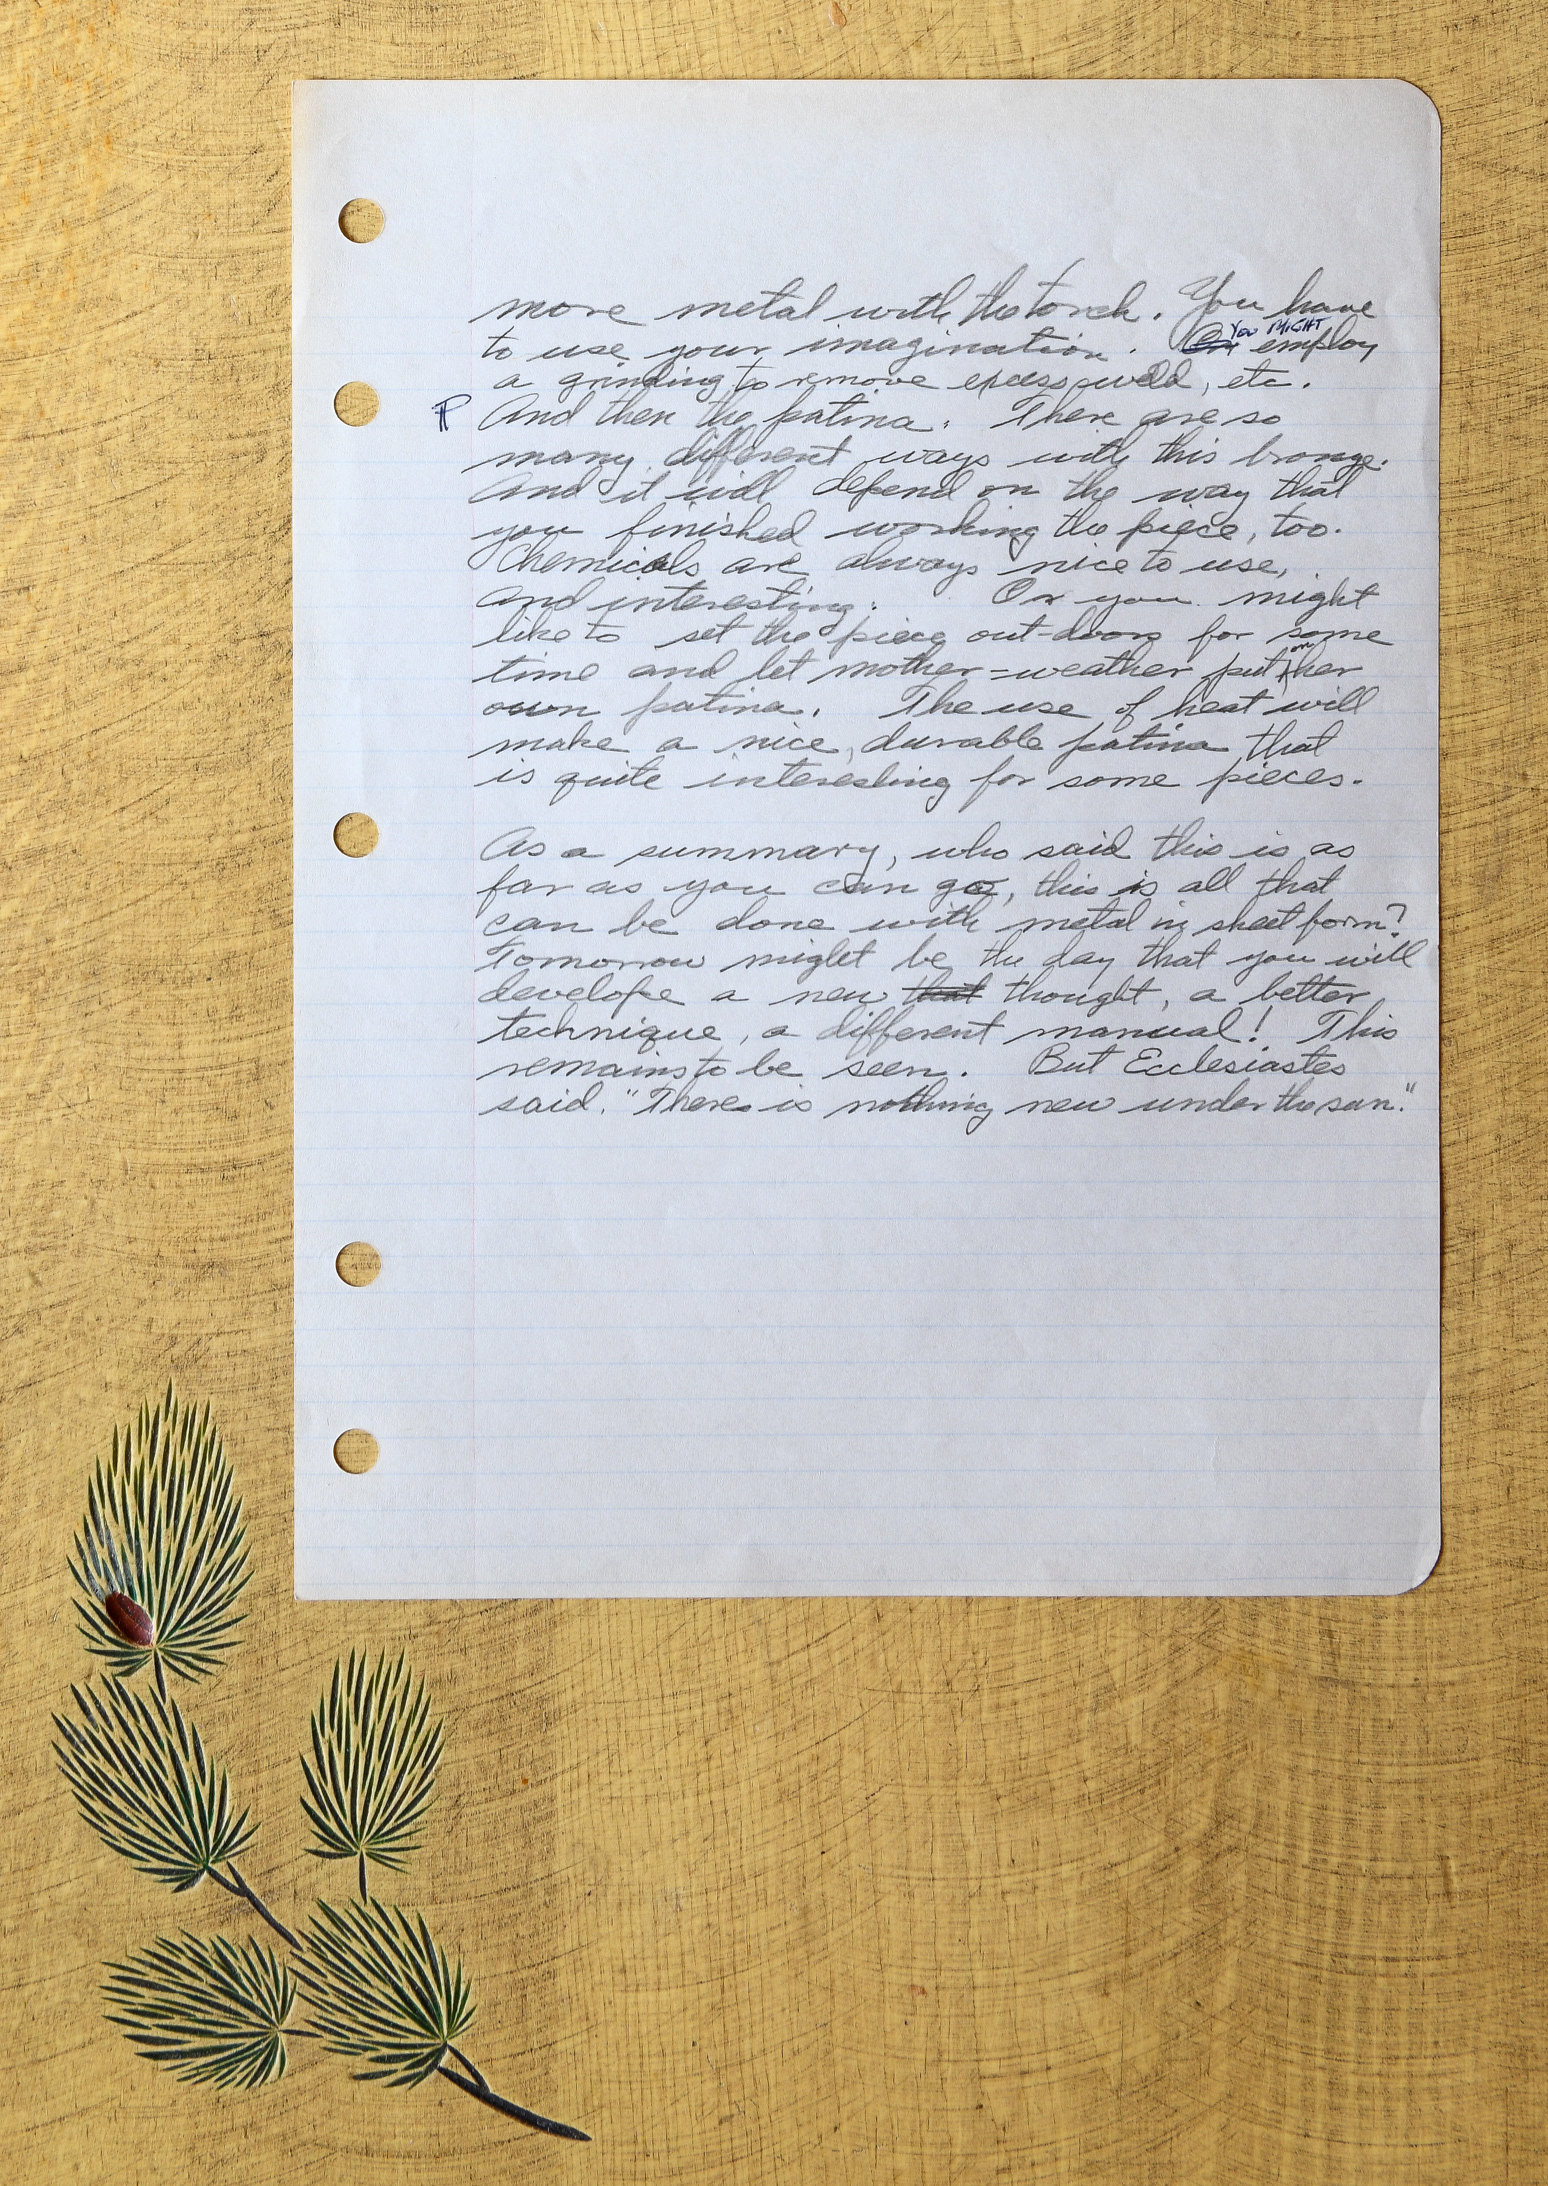 more metal with the torch. You have
to use your imagination. YOU MIGHT employ
a grinding to remove excess weld, etc.
¶ And then the patina. There are so
many different ways with this bronze.
And it will depend on the way that
you finished working the piece, too.
Chemicals are always nice to use,
and interesting. Or you might
like to set the piece out-doors for some
time and let mother-weather put on her
own patina. The use of heat will
make a nice, durable patina that
is quite interesting for some pieces.
As a summary, who said this is as
far as you can go, this is all that
can be done with metal in sheet form?
Tomorrow might be the day that you will
develope a new that thought, a better
technique, a different manual! This
remains to be seen. But Ecclesiastes
said. "There is nothing new under the sun."